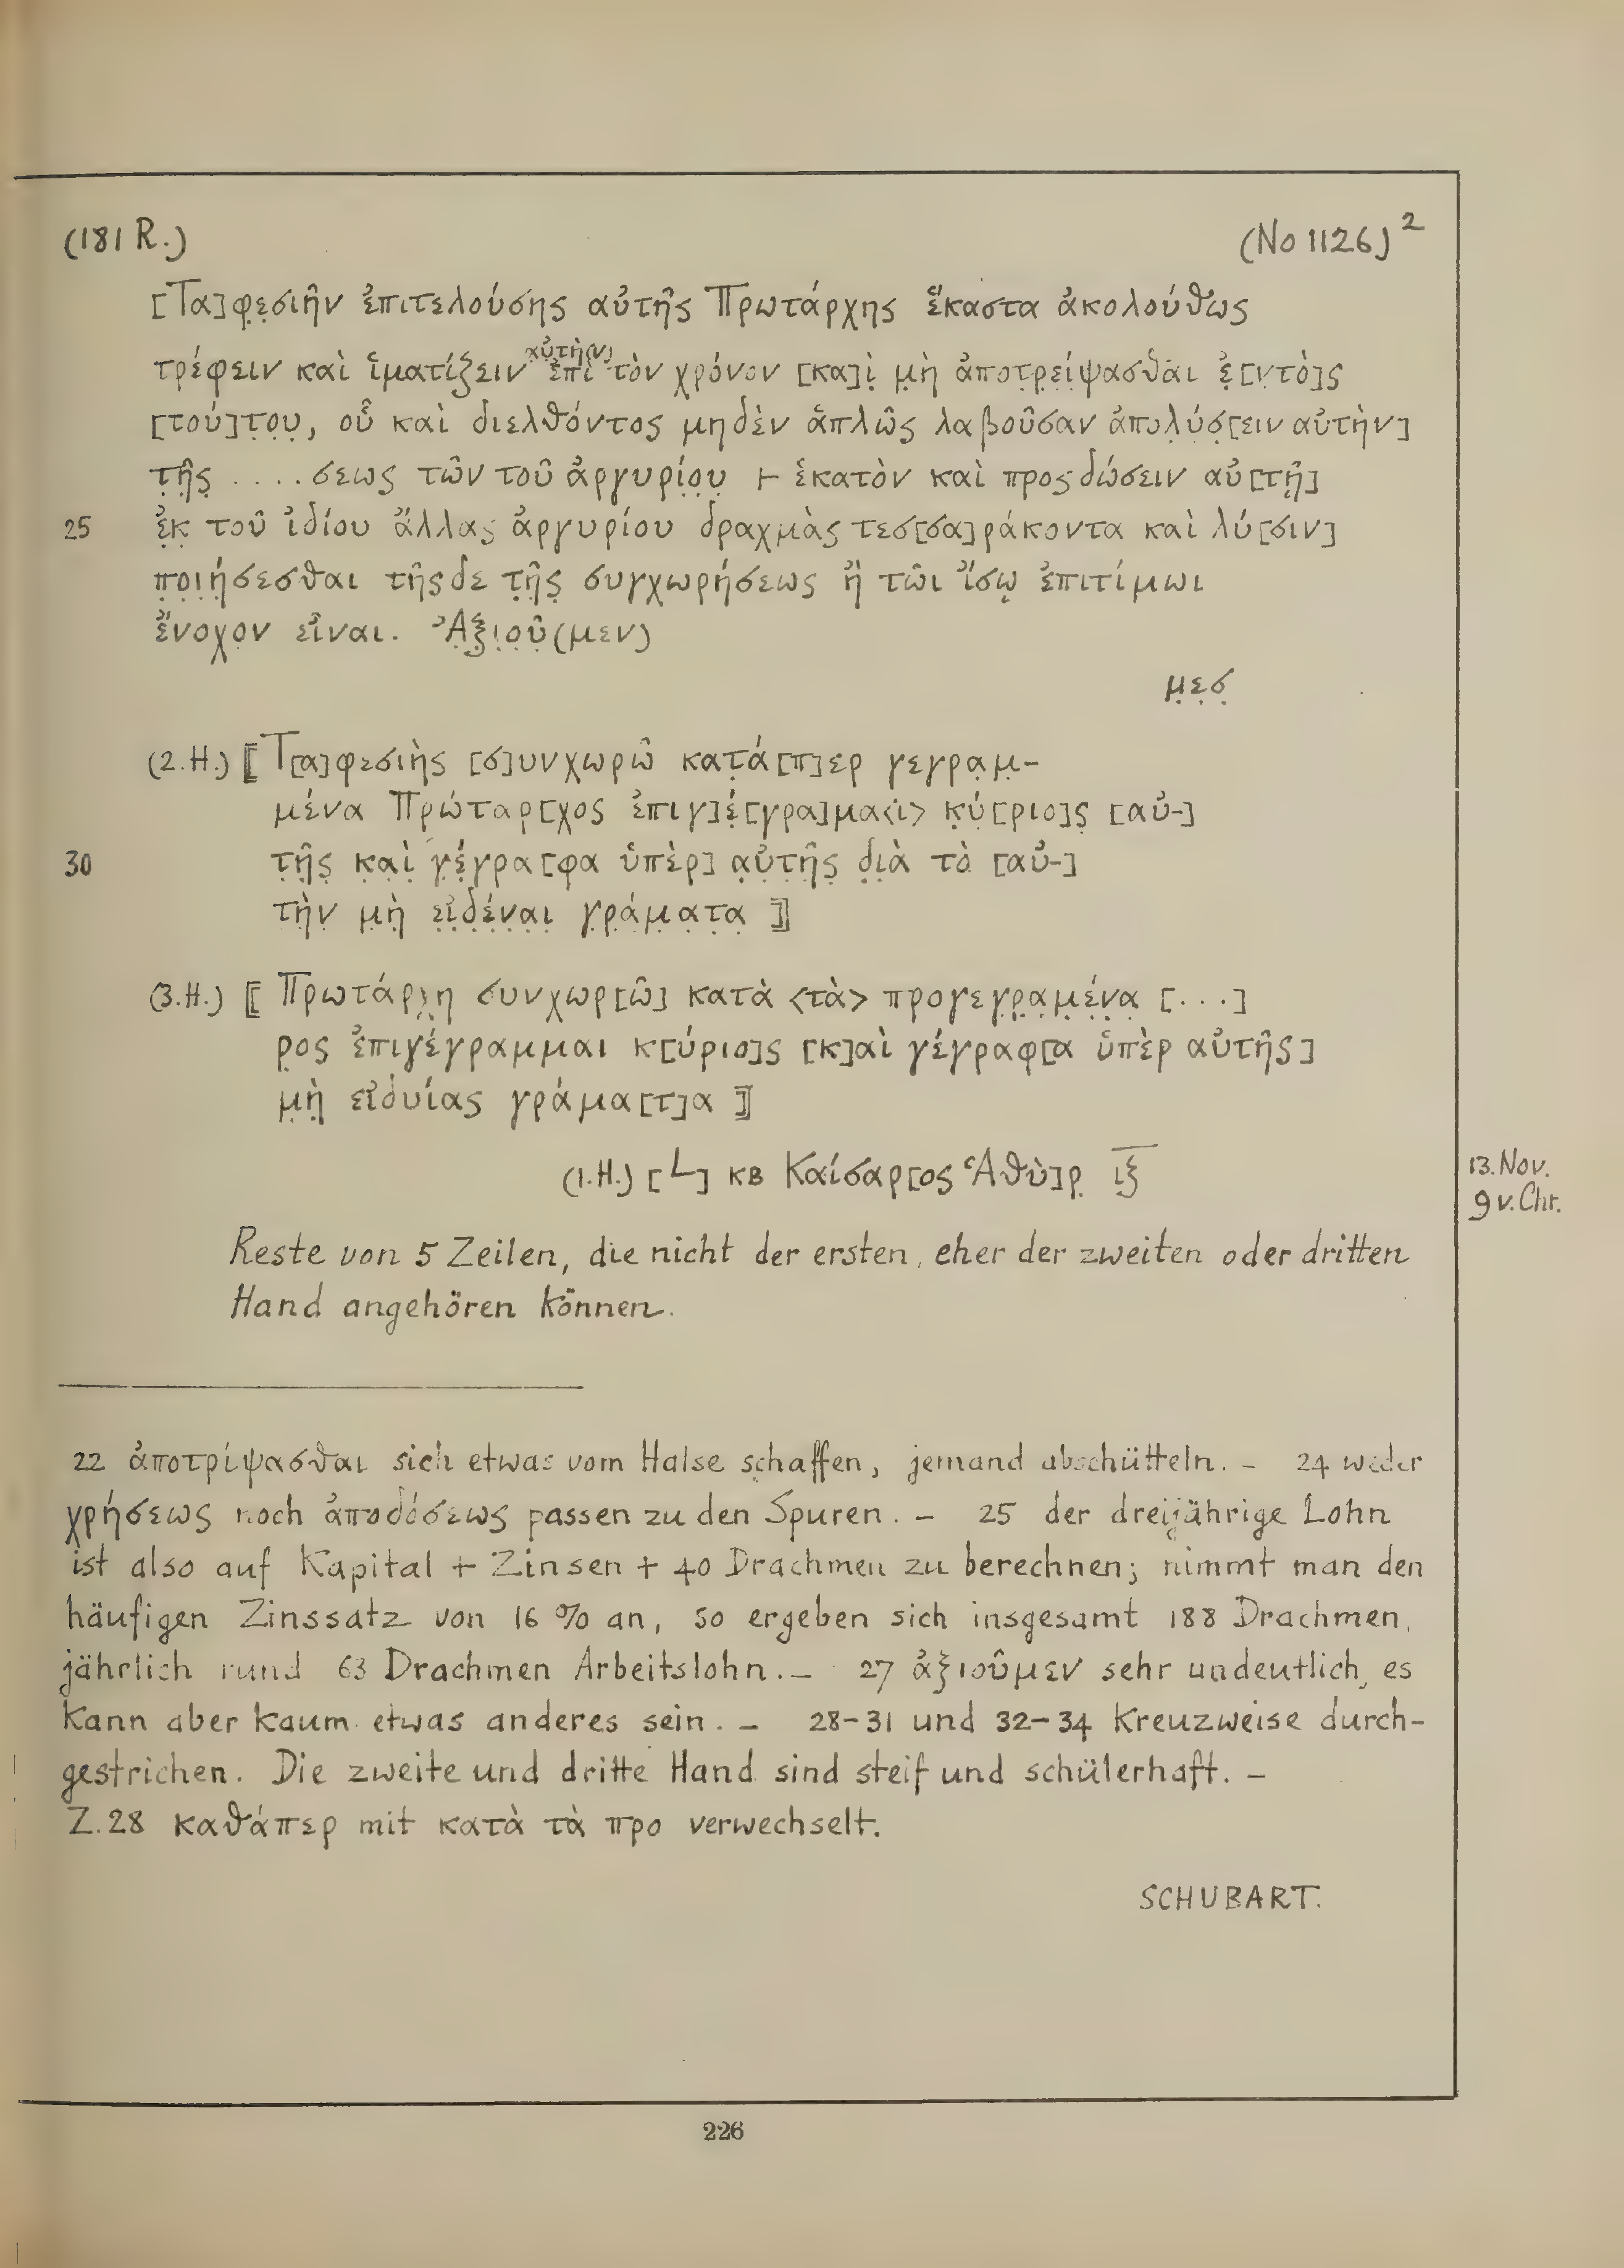 (181 R.) (No 1126)²
[Τα]φ̣ε̣σιῆν ἐπιτελούσης αὐτῆς Πρωτάρχης ἕκαστα ἀκολούθως
αὐτὴ(ν)
τρέφειν καὶ ἱματίζειν ἐπὶ τὸν χρόνον [κα]ὶ̣ μ̣ὴ ἀποτ̣ρ̣ε̣ίψασθαι ἐ̣[ντὸ]ς
[τού]τ̣ο̣υ̣, οὗ καὶ διελθόντος μηδὲν ἁπλῶς λαβοῦσαν ἀπολ̣ύσ̣[ειν αὐτὴν]
τ̣ῆ̣ς̣ . . . . σεως τῶν τοῦ ἀργυρί̣ο̣υ̣ ⊢ ἑκατὸν καὶ προσδώσειν αὐ[τῇ]
25 ἐ̣κ̣ τοῦ ἰδίου ἄλλας ἀργυρίου δραχμὰς τεσ[σα]ράκοντα καὶ λύ[σιν]
π̣ο̣ι̣ή̣σεσθαι τῆσδε τ̣ῆ̣ς̣ συγχωρήσεως ἢ τῶι ἴσῳ ἐπιτίμωι
ἔνοχον εἶναι. Ἀ̣ξ̣ι̣ο̣ῦ̣(μεν)
μ̣ε̣σ̣
(2. H.) ⟦Τ[α]φεσιὴς [σ]υνχωρῶ κατ̣ά[π]ερ γεγρα̣μ̣-
μένα Πρώταρ[χος ἐπιγ]έ̣[γρα]μα<ι> κ̣ύ̣[ριο]ς̣ [αὐ-]
30 τ̣ῆ̣ς̣ κ̣α̣ὶ̣ γ̣έ̣γρα[φα ὑπὲρ] α̣ὐ̣τ̣ῆ̣ς̣ δ̣ι̣ὰ τὸ̣ [αὐ-]
τὴ̣ν μ̣ὴ̣ ε̣ἰ̣δ̣έ̣ν̣α̣ι̣ γ̣ρ̣ά̣μ̣α̣τ̣α̣⟧
(3. H.) ⟦Πρωτάρχη συνχωρ[ῶ] κατὰ <τὰ> προγεγ̣ρ̣α̣μ̣έ̣ν̣α̣ [. . .]
ρ̣ος ἐπιγέγραμμαι κ[ύριο]ς [κ]αὶ γέγραφ[α ὑπὲρ αὐτῆς]
μ̣ὴ̣ εἰδυίας γράμα[τ]α⟧
(1. H.) [L] κβ Καίσαρ[ος Ἁθὺ]ρ̣ ιξ̅
13. Nov.
9 v. Chr.
Reste von 5 Zeilen, die nicht der ersten, eher der zweiten oder dritten
Hand angehören können.
22 ἀποτρίψασθαι sich etwas vom Halse schaffen, jemand abschütteln. – 24 weder
χρήσεως noch ἀποδόσεως passen zu den Spuren. – 25 der dreijährige Lohn
ist also auf Kapital + Zinsen + 40 Drachmen zu berechnen; nimmt man den
häufigen Zinssatz von 16 % an, so ergeben sich insgesamt 188 Drachmen,
jährlich rund 63 Drachmen Arbeitslohn. – 27 ἀξιοῦμεν sehr undeutlich, es
kann aber kaum etwas anderes sein. – 28–31 und 32–34 Kreuzweise durch-
gestrichen. Die zweite und dritte Hand sind steif und schülerhaft. –
Z. 28 καθάπερ mit κατὰ τὰ προ verwechselt.
SCHUBART.
226